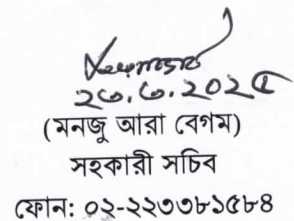 ২৩.৩.২০২৫
(মনজু আরা বেগম)
সহকারী সচিব
ফোন: ০২-২২৩৩৮১৫৮৪